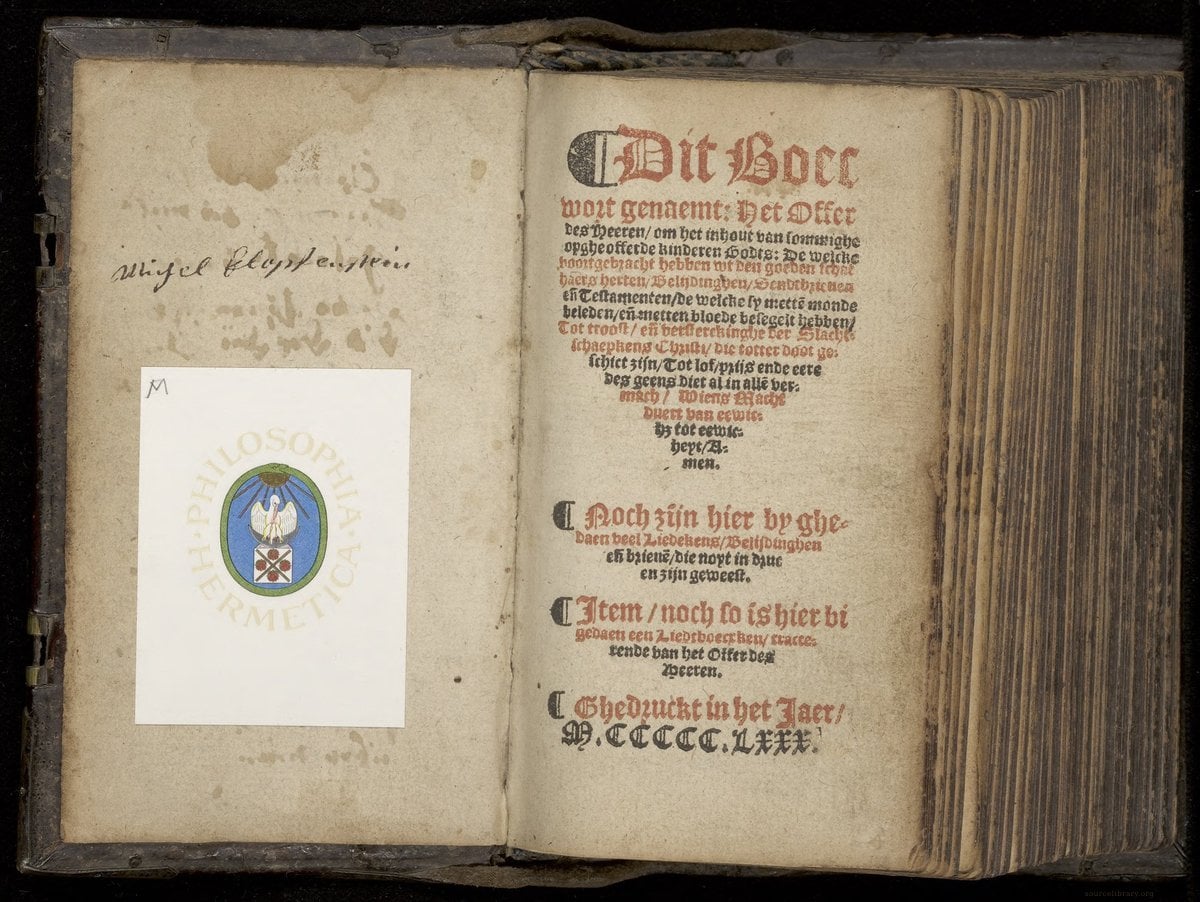 Michel Klopfenstein
M
PHILOSOPHIA · HERMETICA ·
¶ Dit Boec
wort genaemt: Het Offer
des Heeren/ om het inhout van sommighe
opgheofferde kinderen Godts: De welcke
voortgebracht hebben wt den goeden schat
haers herten/ Belijdinghen/ Sendtbrieuen
eñ Testamenten/de welcke sy mettē monde
beleden/eñ metten bloede besegelt hebben/
Tot troost/ eñ versterckinghe der Slacht-
schaepkens Christi/ die totter doot ge-
schict zijn/Tot lof/prijs ende eere
des geens diet al in allē ver-
mach/ Wiens Macht
duert van eewic-
hz tot eewic-
heyt/A-
men.
¶ Noch zijn hier by ghe-
daen veel Liedekens/Belijdinghen
eñ brieuē/die noyt in druc
en zijn geweest.
¶ Item/noch so is hier bi
gedaen een Liedtboecxken/ tracte-
rende van het Offer des
Heeren.
¶ Ghedruckt in het Jaer/
M.CCCCC.LXXX.
sourcelibrary.org